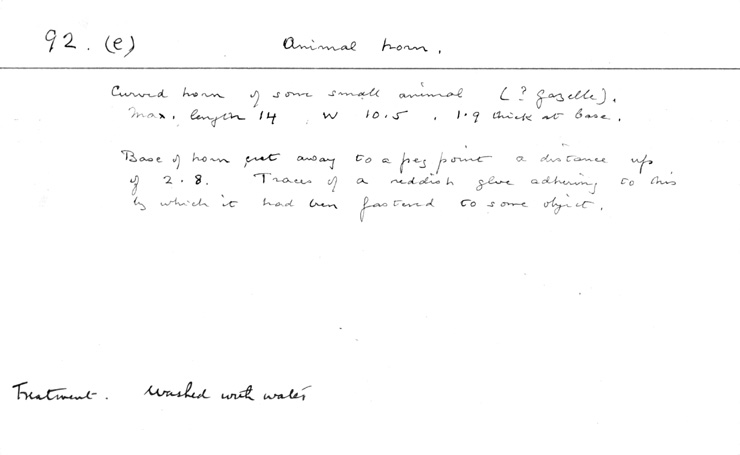 92. (e) Animal horn.
Curved horn of some small animal (? gazelle).
Max. length 14 W 10.5. 1.9 thick at base.
Base of horn cut away to a peg point a distance up
of 2.8. Traces of a reddish glue adhering to this
by which it had been fastened to some object.
Treatment. Washed with water